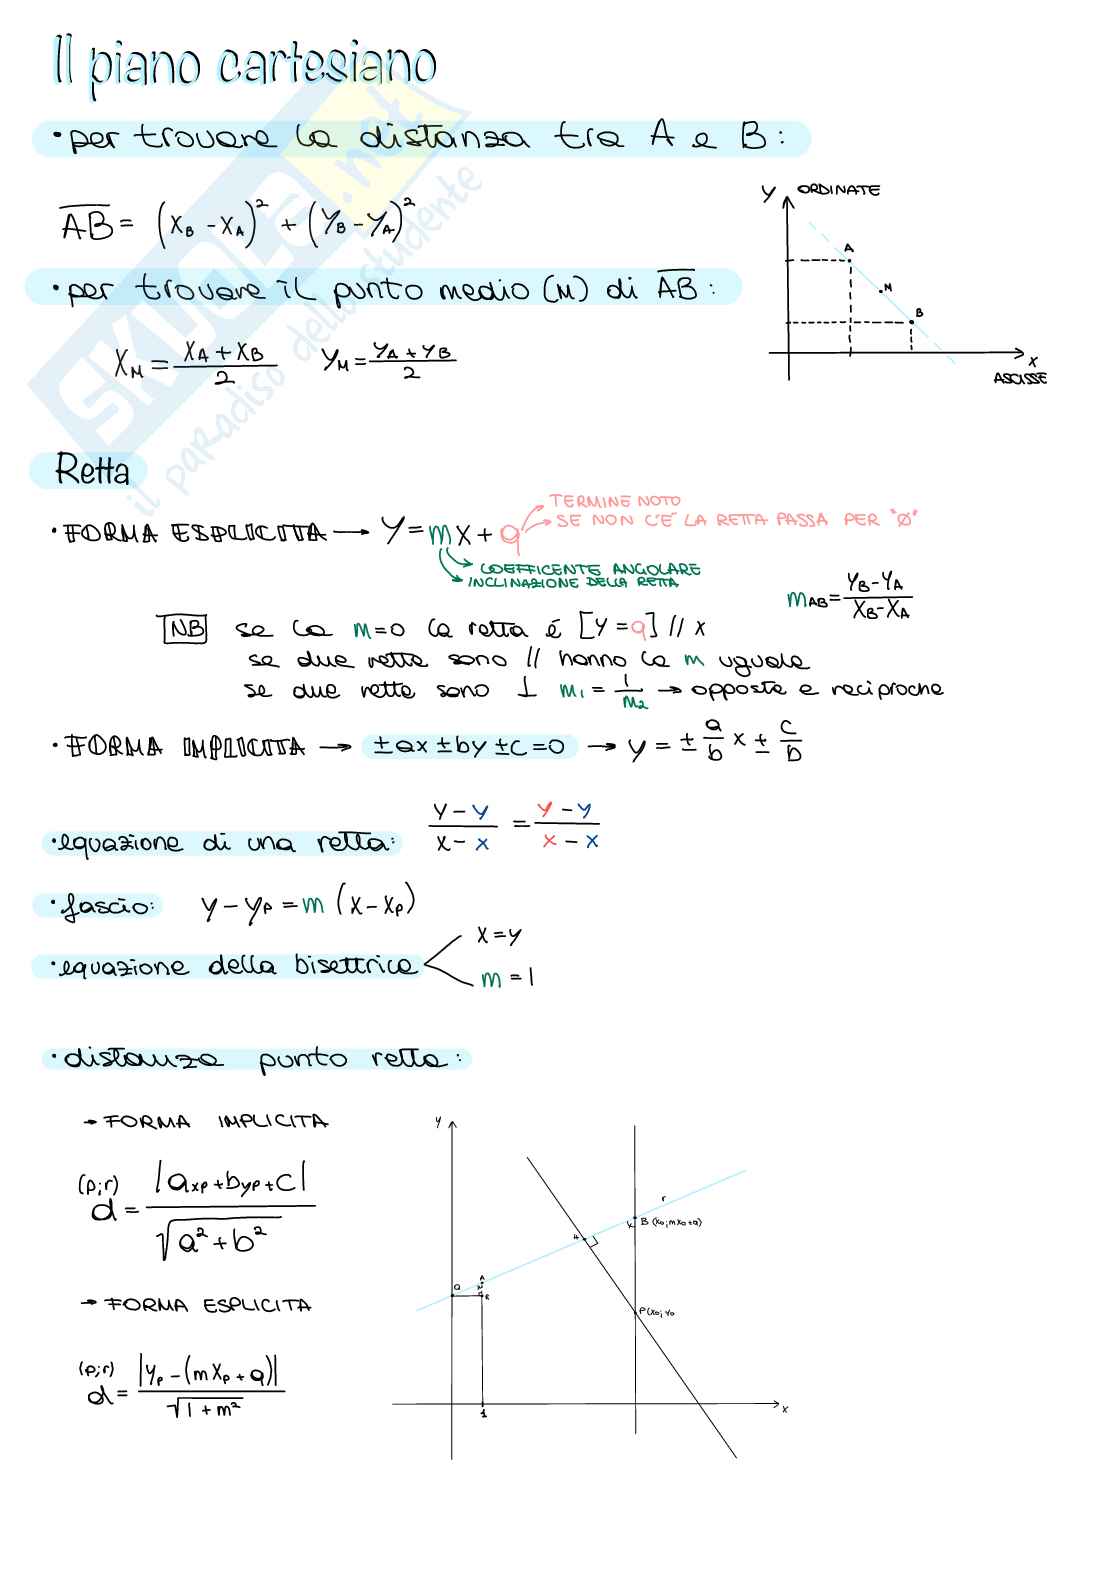 Il piano cartesiano
• per trovare la distanza tra A e B:
AB = (x_B - x_A)² + (y_B - y_A)²
y ORDINATE
A
M
B
x
ASCISSE
• per trovare il punto medio (M) di AB:
x_M = (x_A + x_B)/2   y_M = (y_A + y_B)/2
SKUOLA.net
il paradiso dello studente
Retta
TERMINE NOTO
SE NON C'È LA RETTA PASSA PER "Ø"
• FORMA ESPLICITA → y = mx + q
COEFFICENTE ANGOLARE
INCLINAZIONE DELLA RETTA
m_AB = (y_B - y_A)/(x_B - x_A)
NB se la m=0 la retta é [y = q] // x
se due rette sono // hanno la m uguale
se due rette sono ⊥ m₁ = 1/m₂ → opposte e reciproche
• FORMA IMPLICITA → ±ax ±by ±c = 0 → y = ± a/b x ± c/b
• equazione di una retta: (y - y)/(x - x) = (y - y)/(x - x)
• fascio: y - y_P = m (x - x_P)
• equazione della bisettrice
x = y
m = 1
• distanza punto retta:
→ FORMA IMPLICITA
(p;r)
d = |ax_P + by_P + c| / √(a² + b²)
→ FORMA ESPLICITA
(p;r)
d = |y_P - (mx_P + q)| / √(1 + m²)
y
r
B (x₀; mx₀+q)
K
H
Q
A
R
P(x₀; y₀
1
x